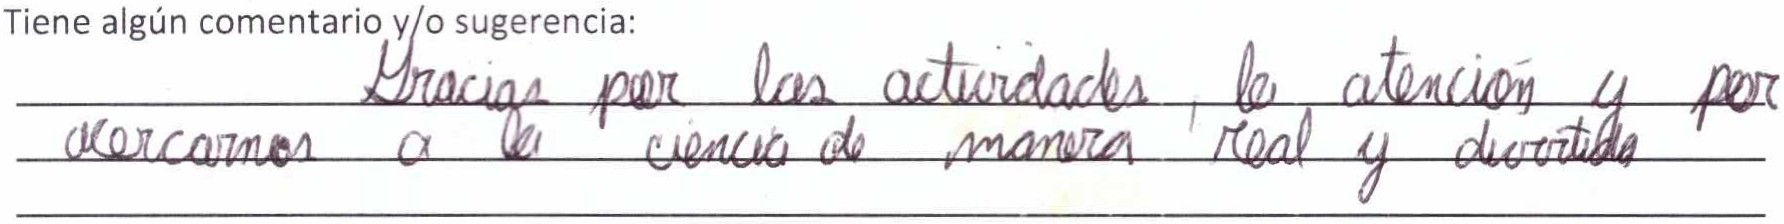 Tiene algún comentario y/o sugerencia:
Gracias por las actividades, la atención y por
acercarnos a la ciencia de manera real y divertida